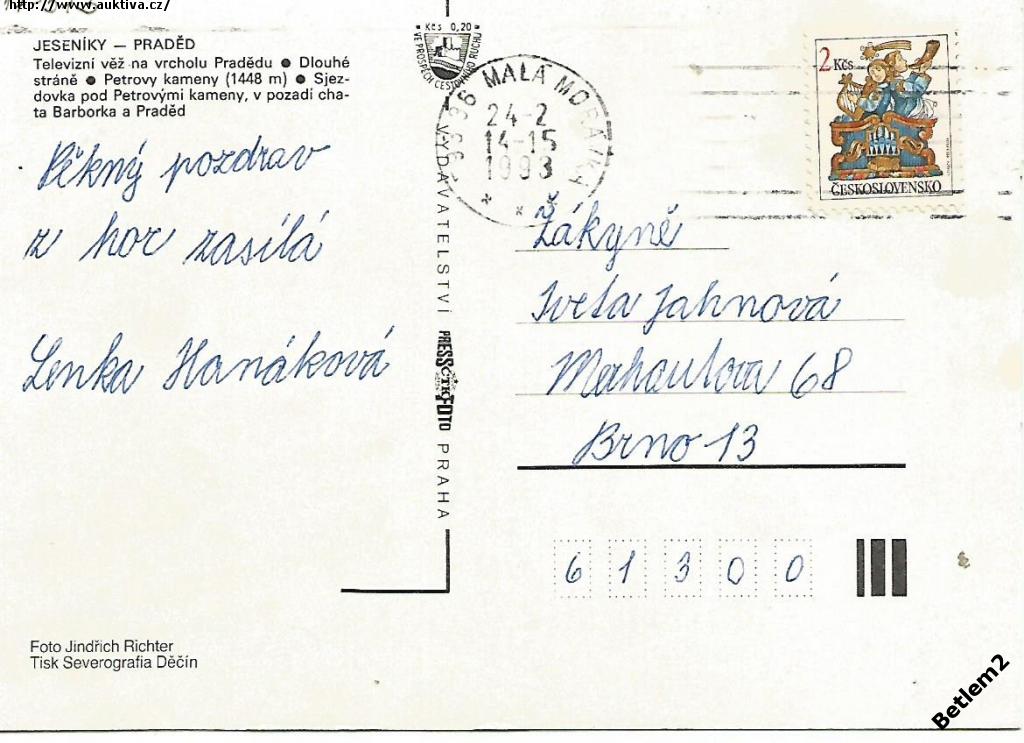 http://www.auktiva.cz/
JESENÍKY — PRADĚD
Televizní věž na vrcholu Pradědu ● Dlouhé
stráně ● Petrovy kameny (1448 m) ● Sjez-
dovka pod Petrovými kameny, v pozadí cha-
ta Barborka a Praděd
Pěkný pozdrav
z hor zasílá
Lenka Hanáková
Kčs 0,20
VE PROSPĚCH CESTOVNÍHO RUCHU
VYDAVATELSTVÍ PRESSFOTO PRAHA
ČTK
96 MALÁ MORÁVKA
24-2
14-15
1993
2 Kčs
ČESKOSLOVENSKO
Žákyně
Iveta Jahnová
Merhautova 68
Brno 13
6 1 3 0 0
Foto Jindřich Richter
Tisk Severografia Děčín
Betlem2